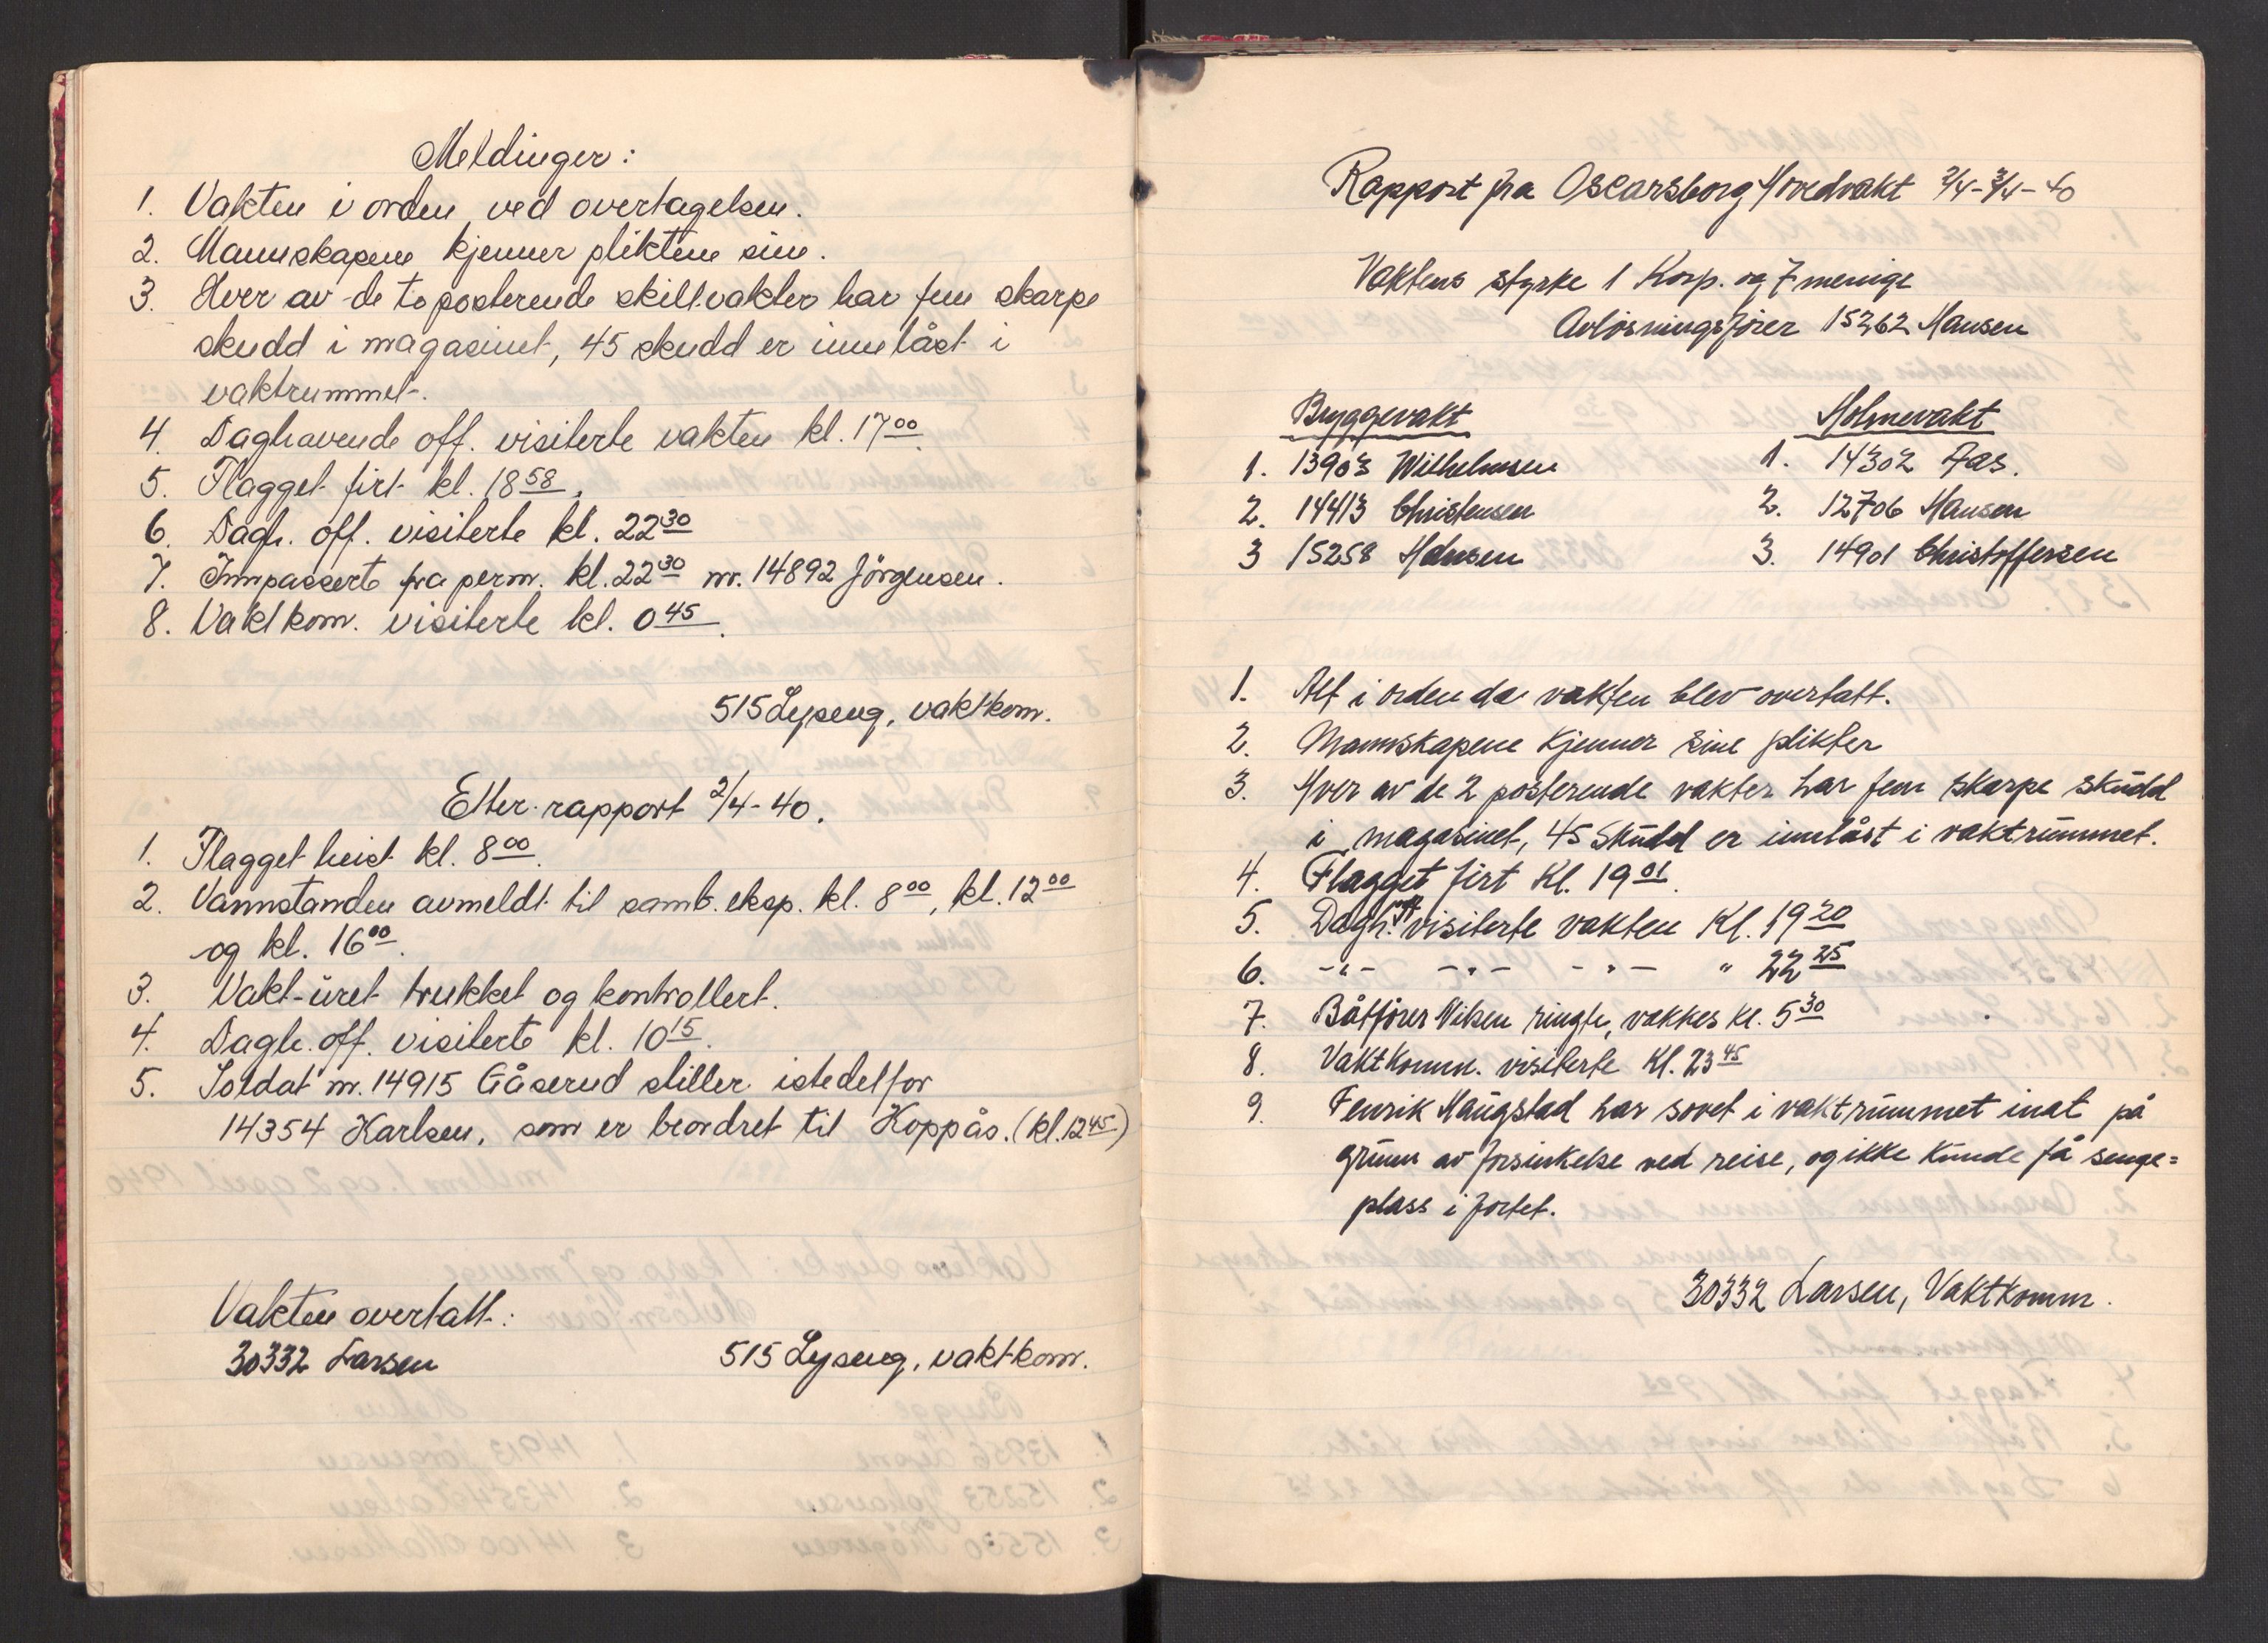 Meldinger:
1. Vakten i orden ved overtagelsen.
2. Mannskapene kjenner pliktene sine.
3. Hver av de to posterende skiltvakter har fem skarpe
skudd i magasinet, 45 skudd er innelåst i
vaktrummet.
4. Daghavende off. visiterte vakten kl. 17⁰⁰.
5. Flagget firt kl. 18⁵⁸.
6. Dagh. off. visiterte kl. 22³⁰
7. Innpasserte fra perm. kl. 22³⁰ nr. 14892 Jörgensen.
8. Vaktkom. visiterte kl. 0⁴⁵.
515 Lyseng, vaktkom.
Etter-rapport 2/4-40.
1. Flagget heist kl. 8⁰⁰.
2. Vannstanden avmeldt til samb. eksp. kl. 8⁰⁰, kl. 12⁰⁰
og kl. 16⁰⁰.
3. Vakt-uret trukket og kontrollert.
4. Dagh. off. visiterte kl. 10¹⁵.
5. Soldat nr. 14915 Gåserud stiller istedetfor
14354 Karlsen, som er beordret til Koppås. (kl. 12⁴⁵)
Vakten overtatt:
30332 Larsen
515 Lyseng, vaktkom.
Rapport fra Oscarsborg Hovedvakt 2/4-3/4-40
Vaktens styrke 1 Korp. og 7 menige
Avlösningsförer 15262 Hansen
Bryggevakt
1. 13903 Wilhelmsen
2. 14413 Christensen
3 15258 Hansen
Holmevakt
1. 14302 Aas.
2. 12706 Hansen
3. 14901 Christoffersen
1. Alt i orden da vakten blev overtatt.
2. Mannskapene kjenner sine plikter
3. Hver av de 2 posterende vakter har fem skarpe skudd
i magasinet, 45 skudd er innlåst i vaktrummet.
4. Flagget firt Kl. 19⁰¹.
5. Dagh. off visiterte vakten Kl. 19²⁰
6. -"- -"- -"- " 22²⁵
7. Båtförer Nilsen ringte, vekkes kl. 5³⁰
8. Vaktkomm. visiterte Kl. 23⁴⁵
9. Fenrik Haugstad har sovet i vaktrummet inat på
grunn av forsinkelse ved reise, og ikke kunde få senge=
plass i fortet.
30332 Larsen, Vaktkomm.